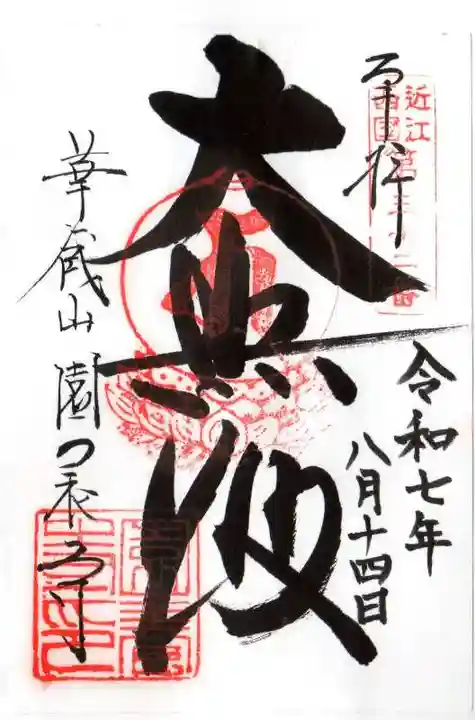 奉拝
近江
西國第三十二番
令和七年
八月十四日
大悲殿
華蔵山 園養寺